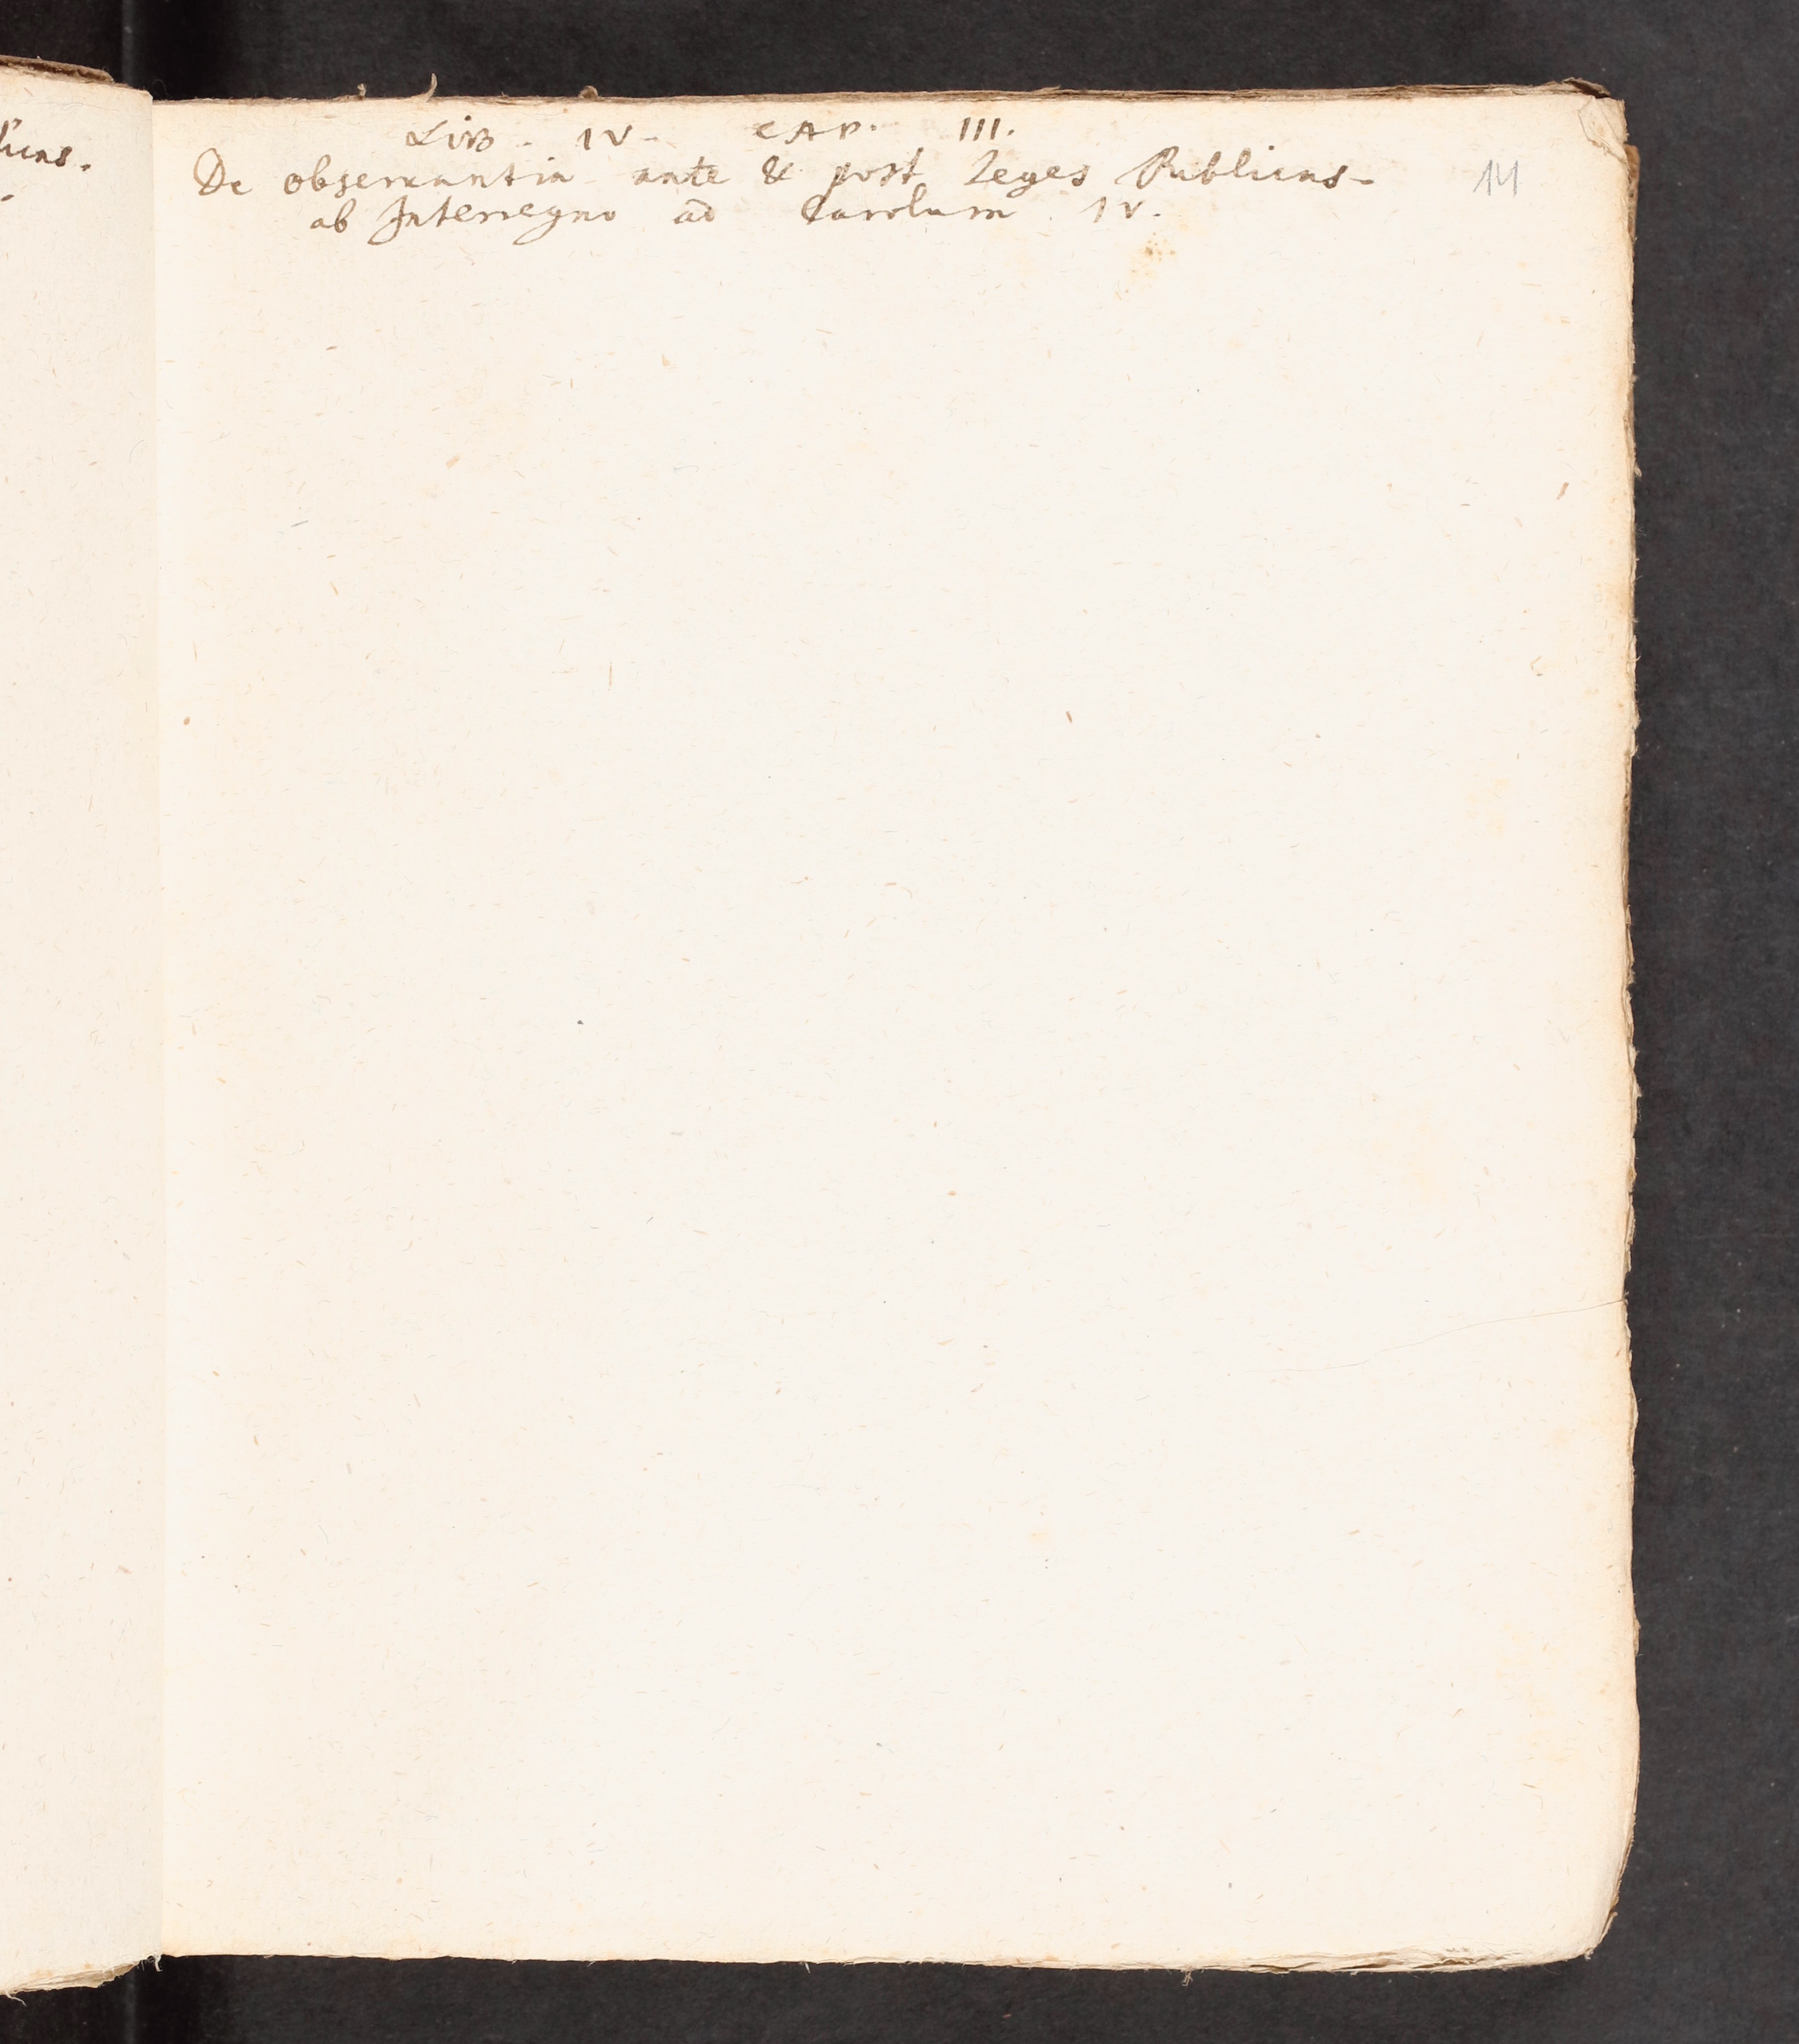 LIB. IV. CAP. III.
De observantia ante & post Leges Publicas.
ab Interregno ad Carolum IV.
14